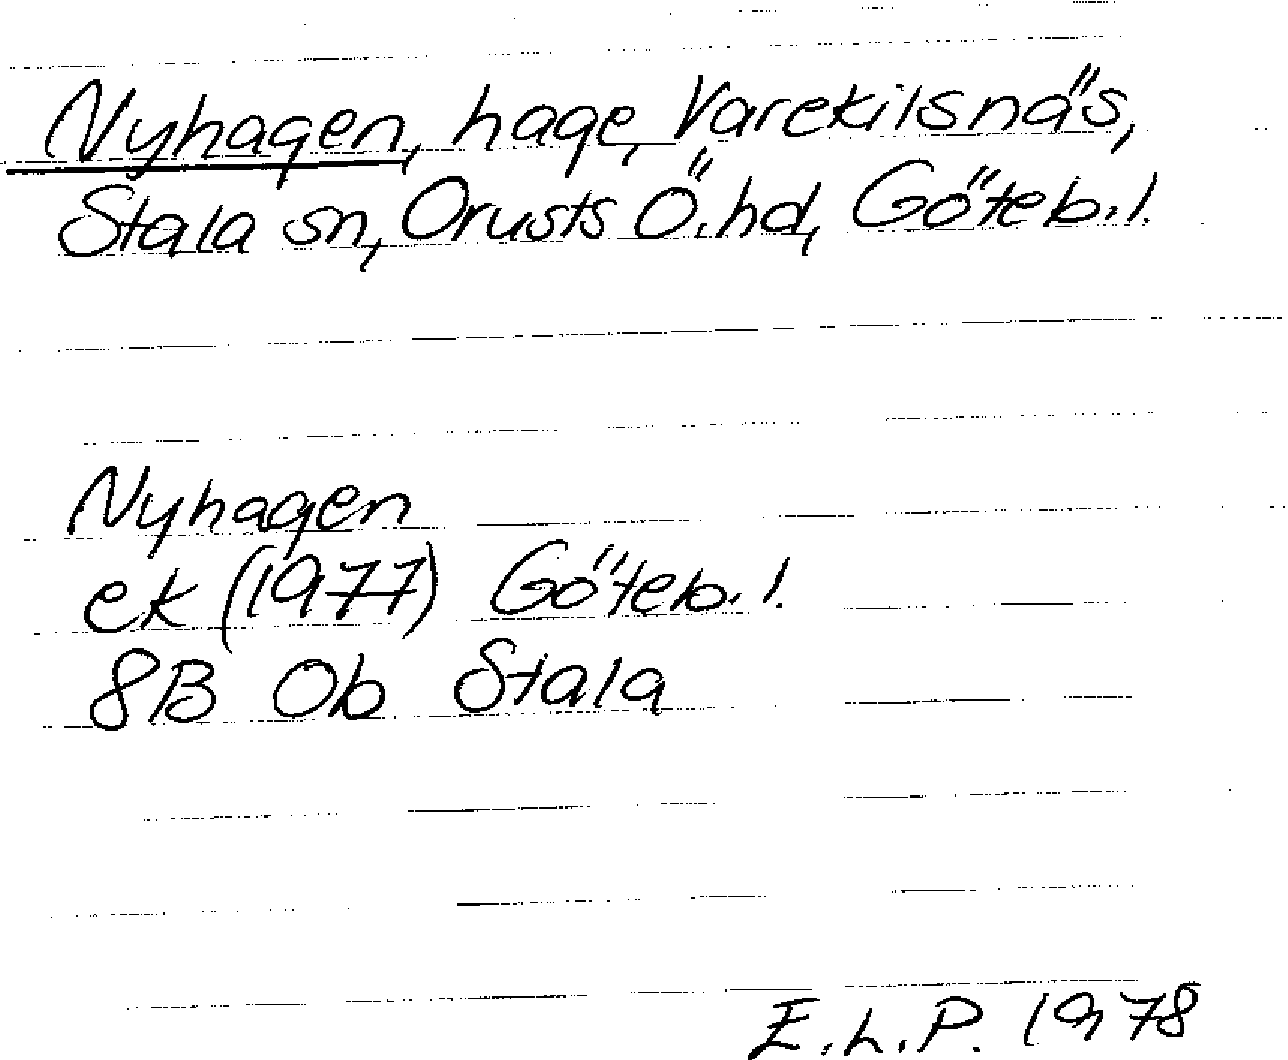 Nyhagen, hage, Varekilsnäs,
Stala sn, Orusts Ö. hd, Göteb. l.
Nyhagen
ek (1977) Göteb. l.
8B 0b Stala
E. L. P. 1978